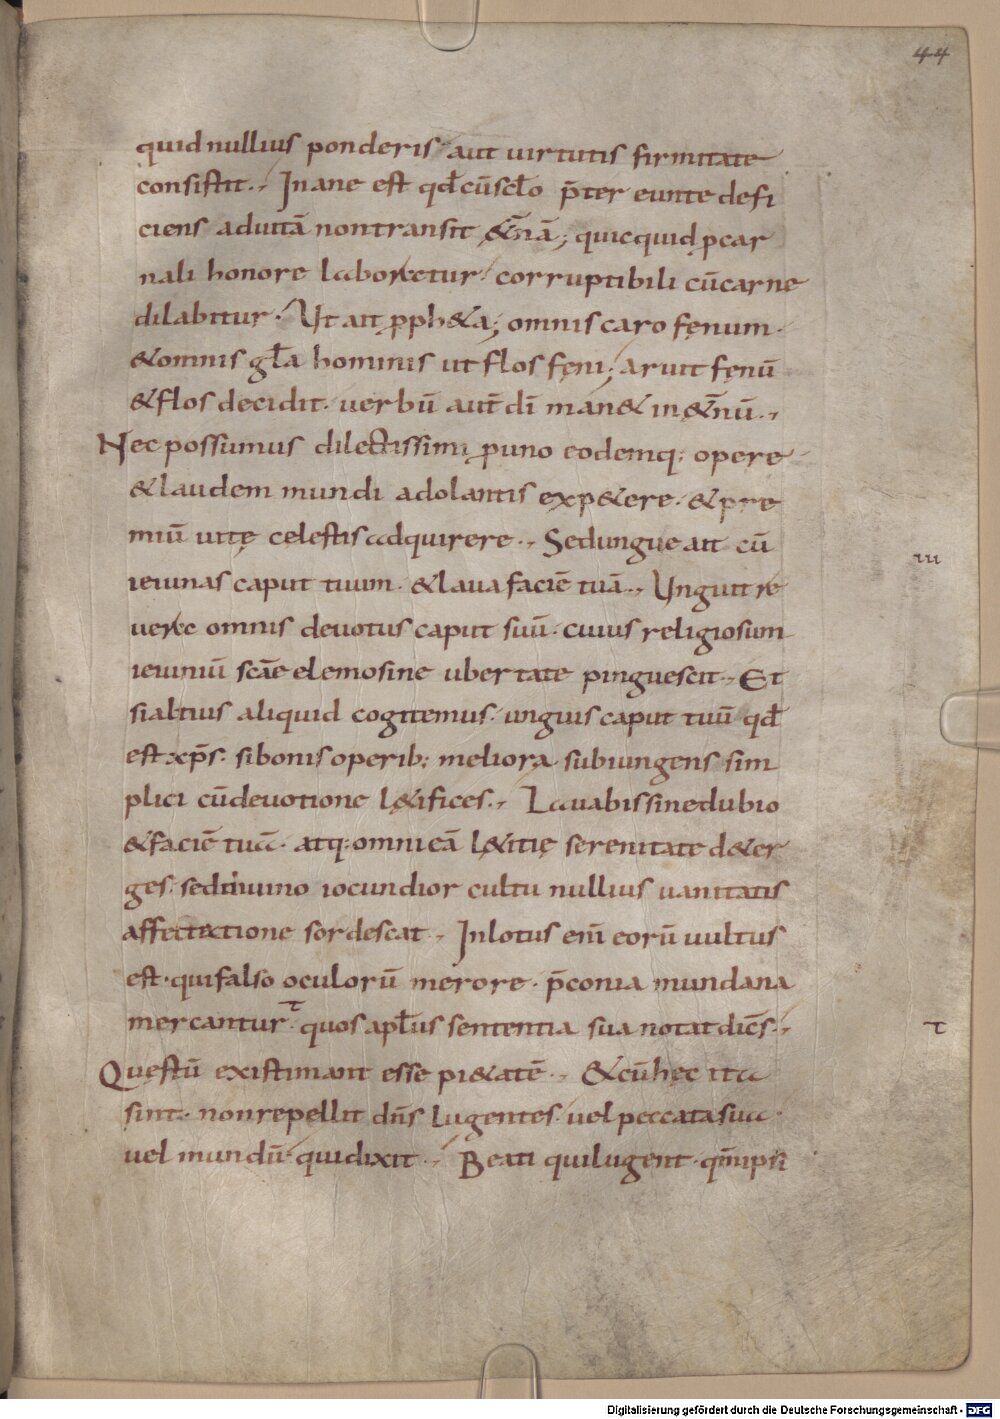 44
quid nullius ponderis aut uirtutis firmitate
consistit., Inane est qđ cū scło p̄ter eunte defi
ciens aduitā non transit &̄nā; quicquid ꝑ car
nali honore laboretur. corruptibili cū carne
dilabitur. Ut ait ꝓph&a; omnis caro fęnum.
& omnis gła hominis ut flos fęni; aruit fęnū
& flos decidit. uerbū aut̄ dī man& in &̄nū.,
Nec possumus dilectissimi ꝑ uno eodemq; opere
& laudem mundi adolantis exp&ere. & pre
miū uitę celestis adquirere., Sed ungue ait cū
ieiunas caput tuum. & laua faciē tuā., Unguit re
uera omnis deuotus caput suū. cuius religiosum
ieiuniū scāe elemosine ubertate pinguescit., Et
si altius aliquid cogitemus. unguis caput tuū qđ
est xp̄s. si bonis operib; meliora subiungens sim
plici cū deuotione l&ifices., Lauabis sine dubio
& faciē tuā. atq; omni eā l&itię serenitate d&er
ges. sed diuino iocundior cultu nullius uanitatis
affectatione sordescat., Inlotus enī eorū uultus
est. qui falso oculorū merore. p̄conia mundana
mercantur. quos apłus sententia sua notat dicēs.,
Quęstū existimant esse pi&atē., & cū hęc ita
sint. non repellit dn̄s lugentes. uel peccata sua.
uel mundū. qui dixit., Beati qui lugent. qm̄ ipsi
iii
τ
τ
Digitalisierung gefördert durch die Deutsche Forschungsgemeinschaft - DFG